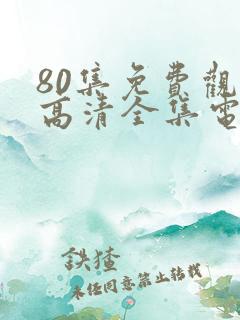 80集免費觀
高清全集電
鉄猹
未经同意禁止转载